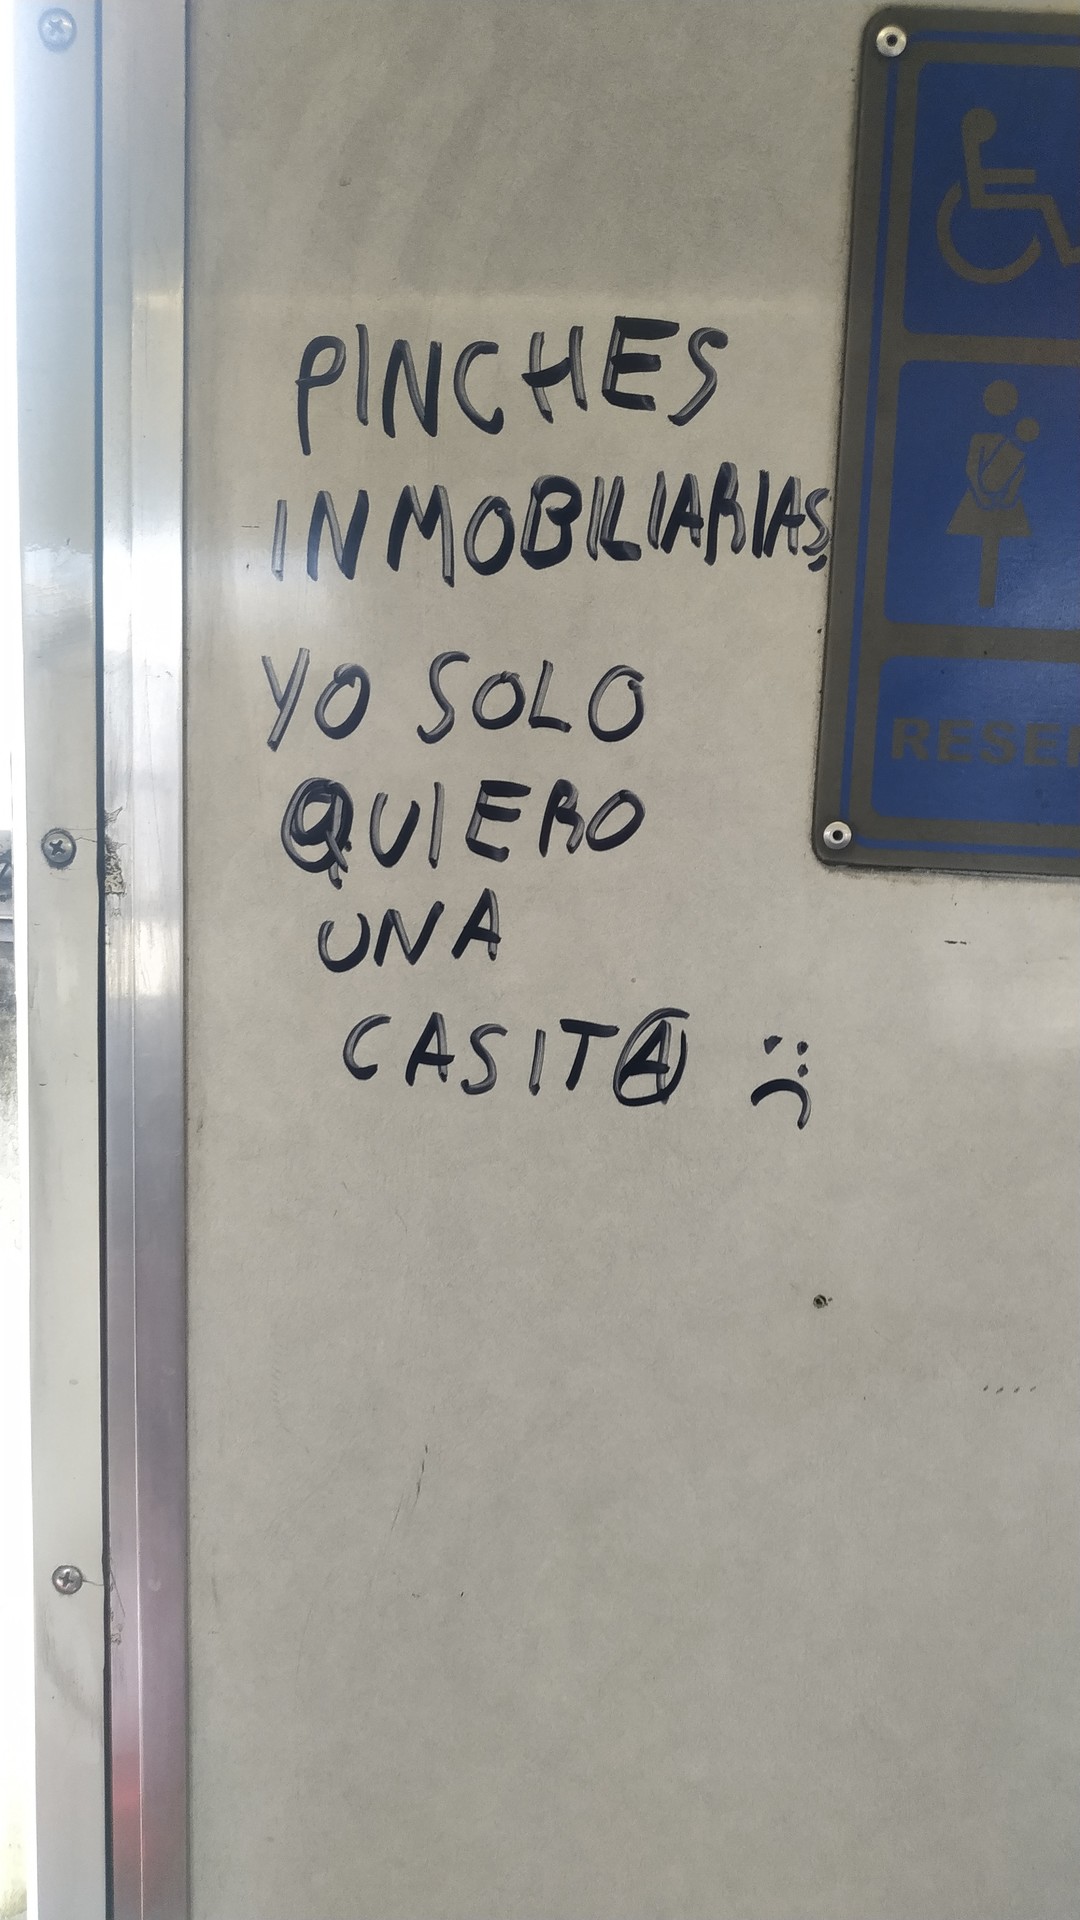 PINCHES
INMOBILIARIAS,
YO SOLO
QUIERO
UNA
CASITA :(
RESER